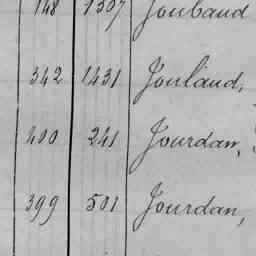 148 1307 Joubaud
342 1431 Joulaud,
400 241 Jourdan,
399 501 Jourdan,